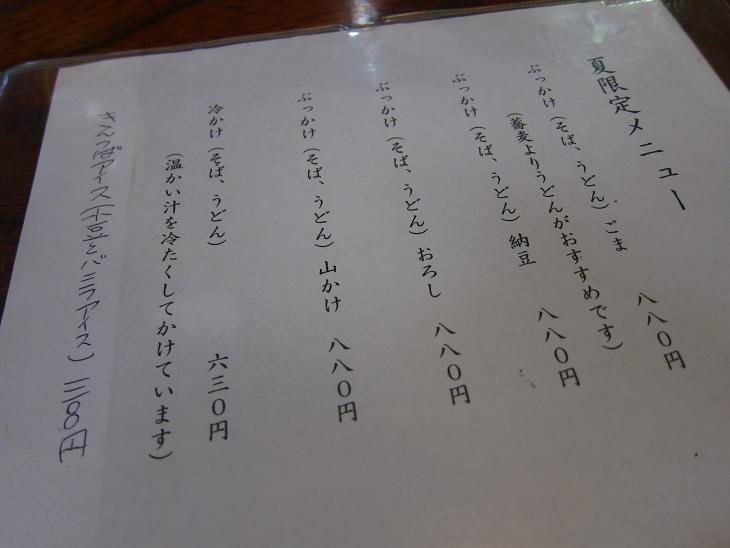 夏限定メニュー
ぶっかけ（そば、うどん）ごま　八八０円
（蕎麦よりうどんがおすすめです）
ぶっかけ（そば、うどん）納豆　八八０円
ぶっかけ（そば、うどん）おろし　八八０円
ぶっかけ（そば、うどん）山かけ　八八０円
冷かけ（そば、うどん）　六三０円
（温かい汁を冷たくしてかけています）
さんっぱアイス（小豆とバニラアイス）三〇〇円